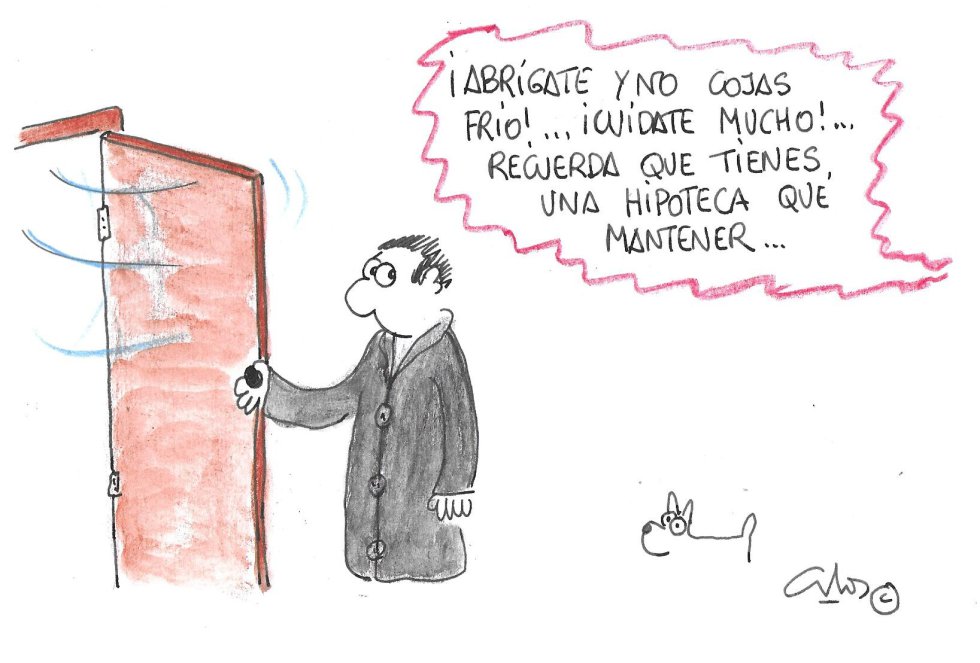 ¡ABRÍGATE Y NO COJAS
FRIO!... ¡CUÍDATE MUCHO!...
RECUERDA QUE TIENES,
UNA HIPOTECA QUE
MANTENER...
©